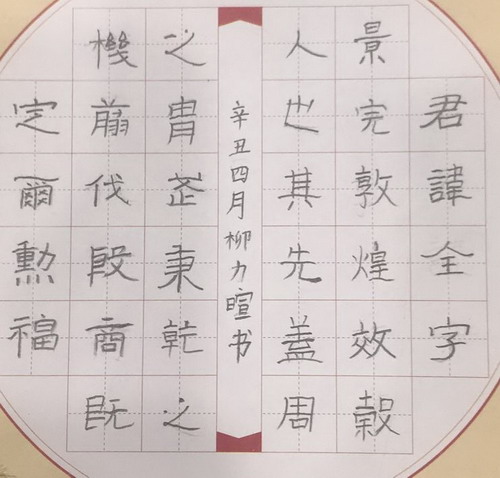 君諱全字
景完敦煌效穀
人也其先蓋周
辛丑四月柳力暄书
之胄秉乾之
機翦伐殷商既
定爾勳福